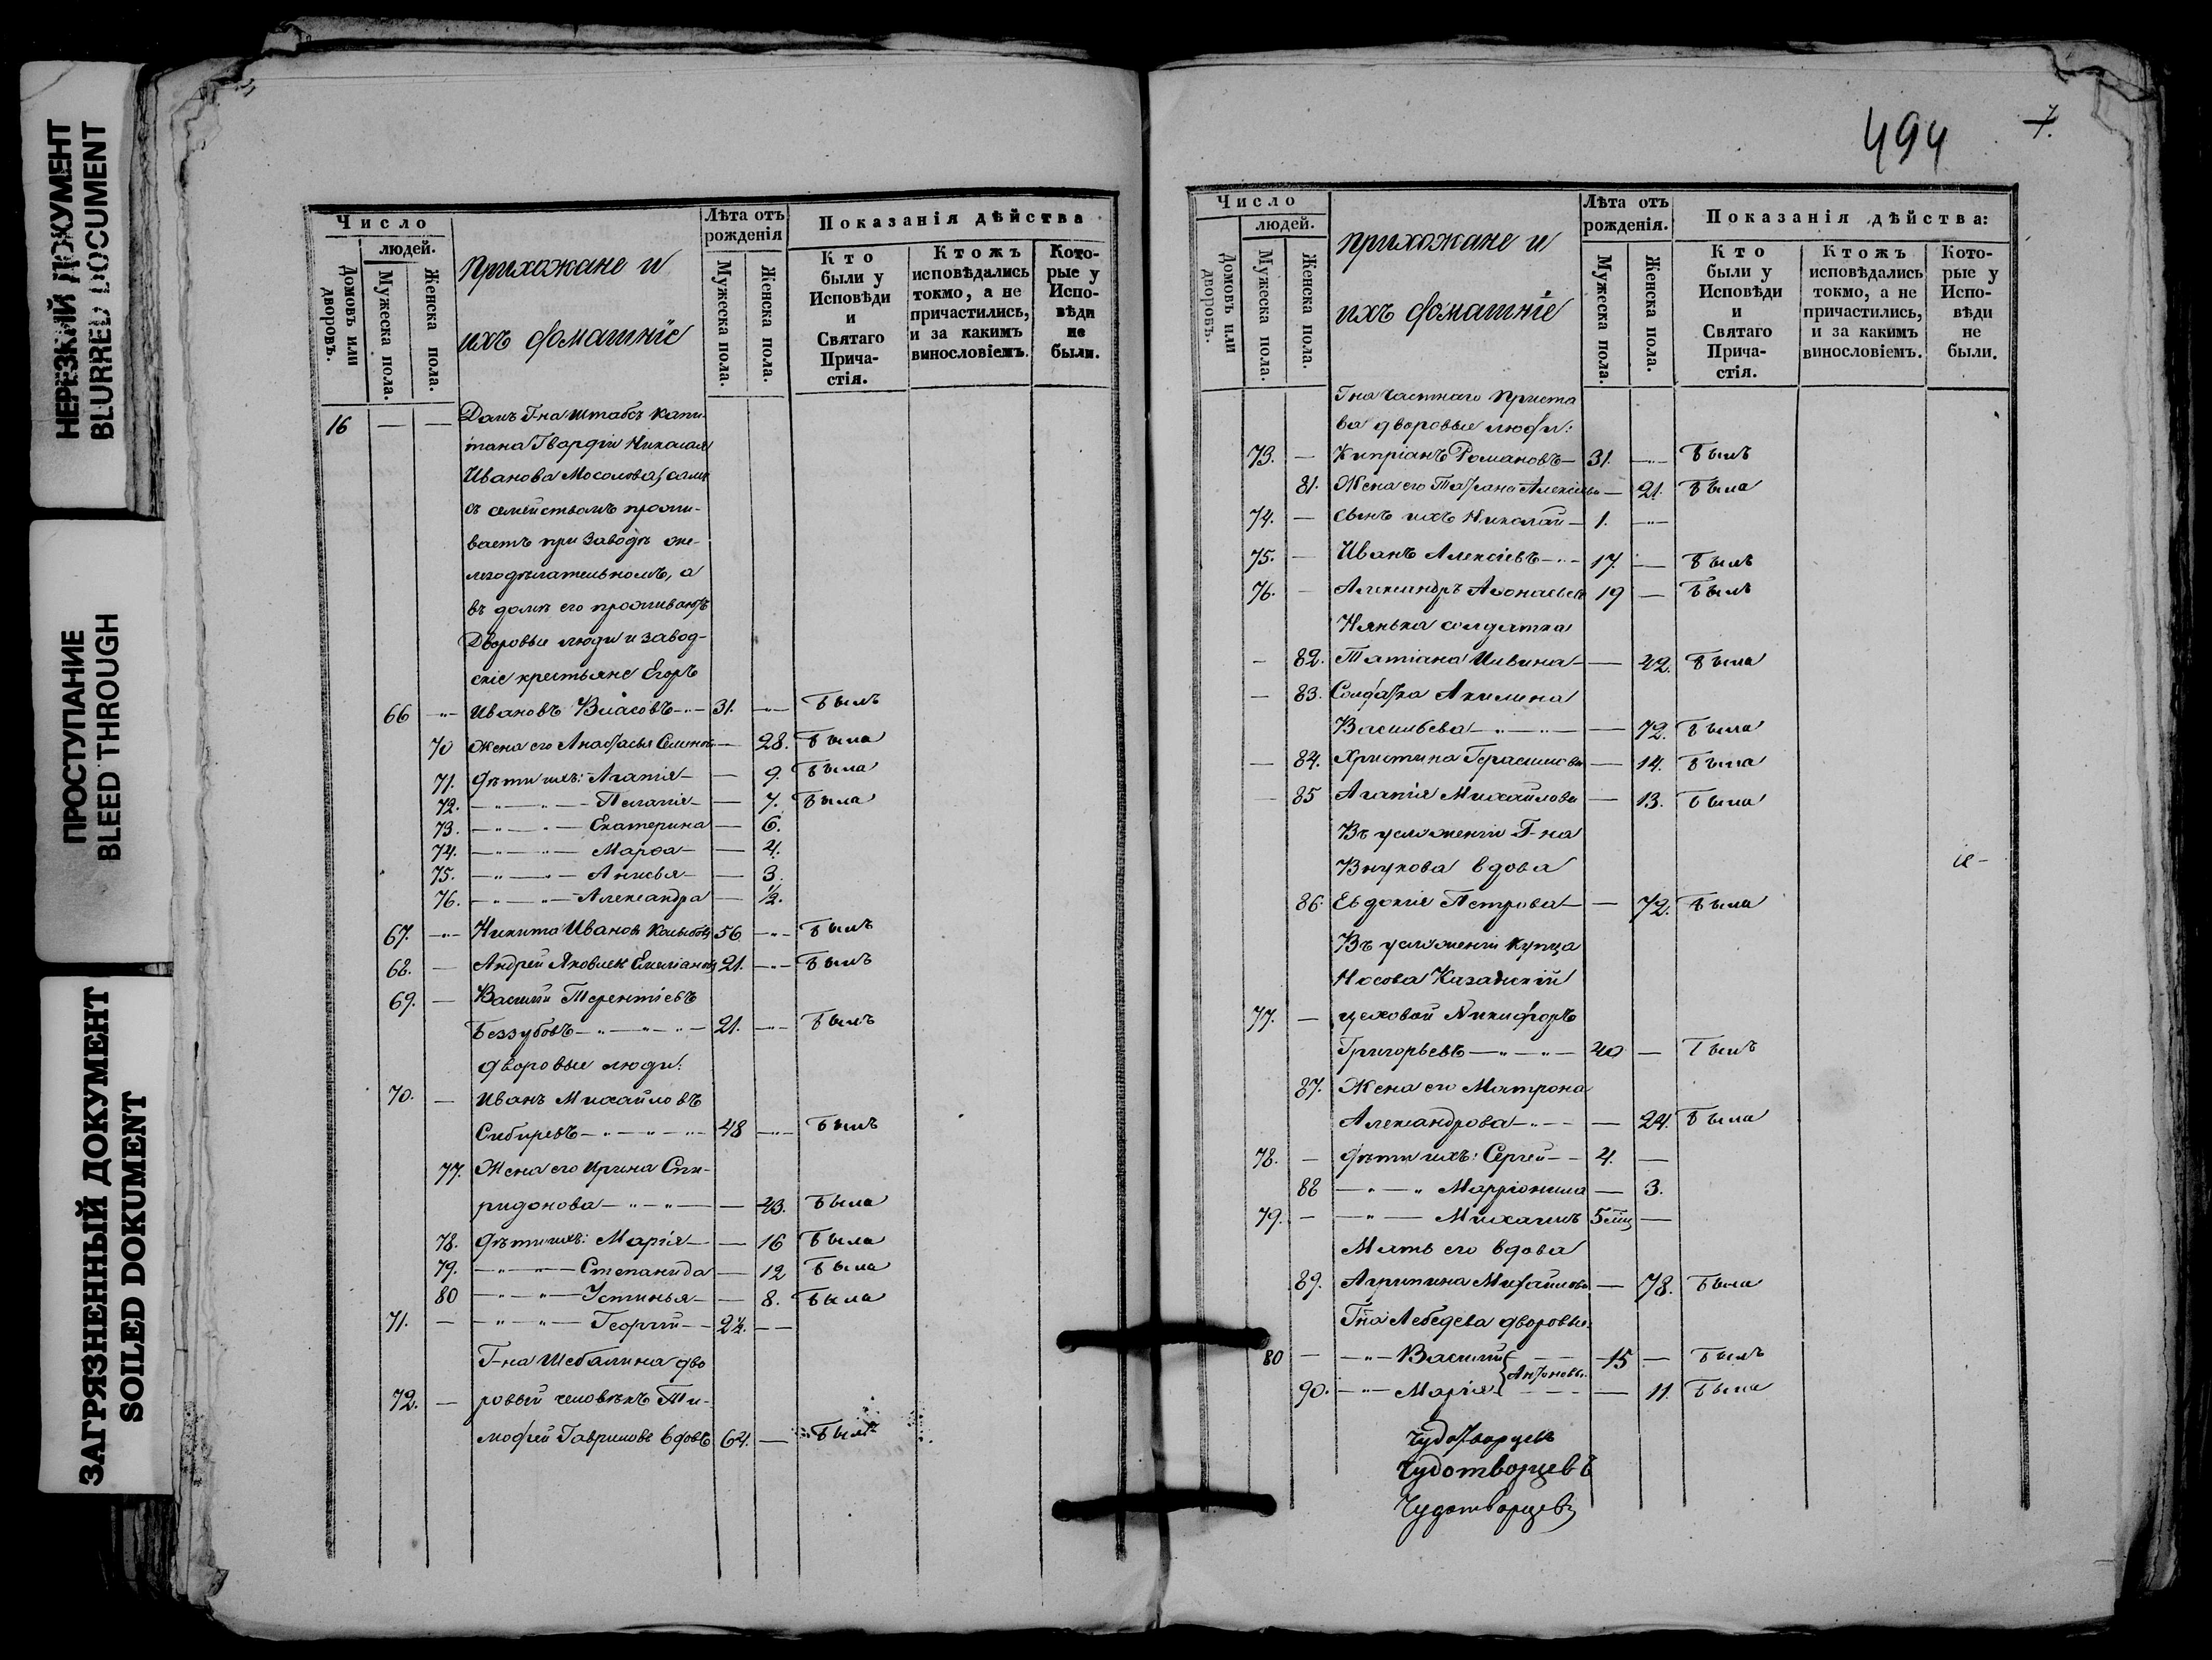 НЕРЕЗКИЙ ДОКУМЕНТ
BLURRED DOCUMENT
ПРОСТУПАНИЕ
BLEED THROUGH
ЗАГРЯЗНЕННЫЙ ДОКУМЕНТ
SOILED DOKUMENT
Число
людей.
Домовъ или дворовъ.
Мужеска пола.
Женска пола.
прихожане и
ихъ домашніе
Лѣта отъ рожденія
Мужеска пола.
Женска пола.
Показанія дѣйства
Кто были у Исповѣди и Святаго Прича-стія.
Ктожъ исповѣдались токмо, а не причастились, и за какимъ винословіемъ.
Кото-рые у Испо-вѣди не были.
16 — — Домъ Г-на Штабсъ Капи-
тана Гвардіи Николая
Иванова Мосолова, самъ
съ семействомъ прожи-
ваетъ при заводѣ же-
лезодѣлательномъ, а
въ домѣ его проживаютъ
Дворовые люди и завод-
скіе крестьяне Егоръ
66 Ивановъ Власовъ 31. Былъ
70 Жена его Анастасья 28. Была
71. Дѣти ихъ: Агапія — 9. Была
72. Пелагія — 7. Была
73. Екатерина — 6.
74. Марѳа — 4.
75. Анисья — 3.
76. Александра — 1/2.
67. Никита Ивановъ 56 Былъ
68. — Андрей Яковлевъ 21. Былъ
69. — Василій Терентіевъ
Беззубовъ 21. Былъ
дворовые люди:
70. — Иванъ Михайловъ
Сибиревъ 48 Былъ
77. Жена его Ирина Спи-
ридонова — 43. Была
78. Дѣти ихъ: Марія — 16 Была
79. Степанида — 12 Была
80 Устинья — 8. Была
71. — Георгій 2½. —
Г-на Шебалина дво
72. — ровый человѣкъ Ти-
мофей Гавриловъ вдовъ 64. — Былъ
494 7.
Число
людей.
Домовъ или дворовъ.
Мужеска пола.
Женска пола.
прихожане и
ихъ домашніе
Лѣта отъ рожденія.
Мужеска пола.
Женска пола.
Показанія дѣйства:
Кто были у Исповѣди и Святаго Прича-стія.
Ктожъ исповѣдались токмо, а не причастились, и за какимъ винословіемъ.
Кото-рые у Испо-вѣди не были.
Г-на Частнаго Приста
ва дворовые люди:
73. — Кипріанъ Романовъ — 31. Былъ
81. Жена его Татіана Алексіева — 21. Была
74. — Сынъ ихъ Николай — 1.
75. — Иванъ Алексіевъ 17. — Былъ
76. — Александръ 19 — Былъ
Нянька солдатка
— 82. Татіана — 42. Была
— 83. Солдатка Акилина
Васильева — 72. Была
— 84. Христина Герасимова — 14. Была
— 85 Агапія Михайлова — 13. Была
Въ услуженіи Г-на
Внукова вдова
86. Евдокія Петрова — 72. Была
Въ услуженіи купца
Носова Казанскій
77. — цеховой Никифоръ
Григорьевъ 40 — Былъ
87. Жена его Матрона
Александрова — 24. Была
78. — Дѣти ихъ: Сергей 4. —
88 — 3.
79. — Михаилъ 5 мѣц —
Мать его вдова
89. Агрипина Михайлова — 78. Была
Г-на Лебедева дворовые
80 — Василій 15 — Былъ
Антоновы
90. Марія — 11. Была
Чудотворцевъ
Чудотворцевъ
Чудотворцевъ